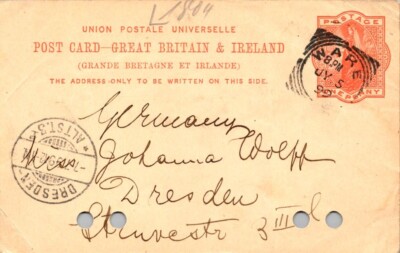 UNION POSTALE UNIVERSELLE
POST CARD—GREAT BRITAIN & IRELAND
(GRANDE BRETAGNE ET IRLANDE)
THE ADDRESS ONLY TO BE WRITTEN ON THIS SIDE.
POSTAGE
PENNY
WARE
8 PM
JY 5
99
Germany
Johanna Wolff
Dresden
Struvestr 3 III
DRESDEN
ALTST.